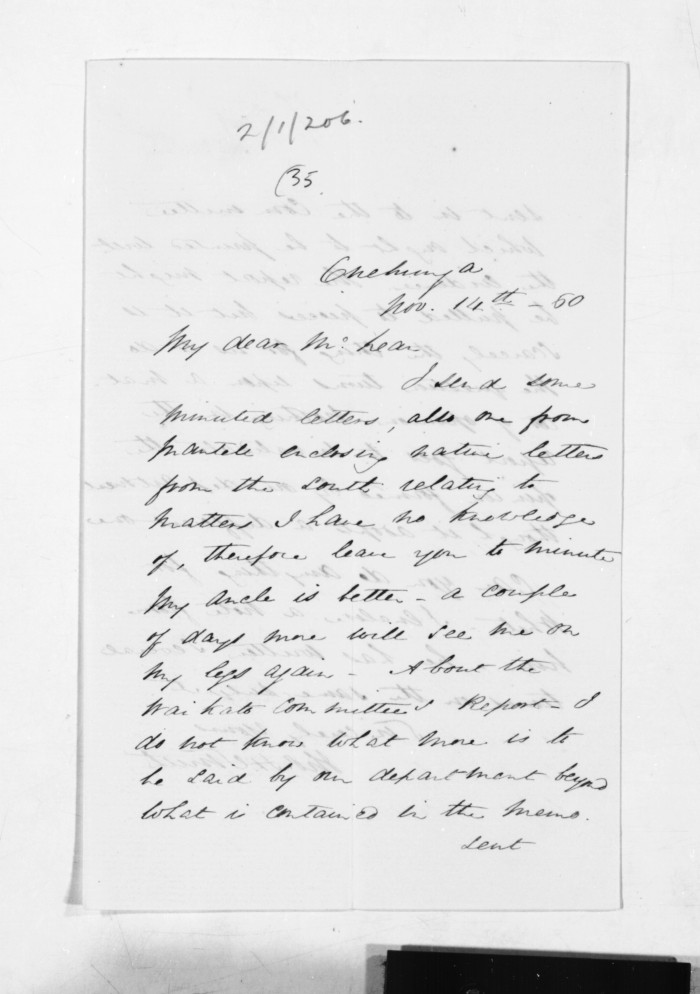 2/1/206.
(35.
Onehunga
Nov. 14th - 60
My dear Mc.Lean
I send some
minuted letters, also one from
Mantell enclosing native letters
from the South relating to
matters I have no knowledge
of, therefore leave you to minute
My ancle is better - a couple
of days more will see me on
my legs again - About the
Waikato Committee's Report - I
do not know what more is to
be said by our department beyond
what is contained in the memo.
sent